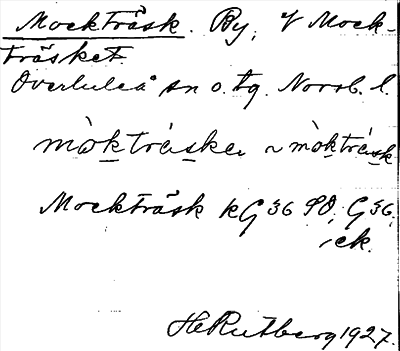 Mockträsk. By, v Mock-
träsket
Överluleå sn o. tg. Norrb. l.
mòktrásken ~ mòktrásk
Mockträsk kG 36 SO, G 36,
ck.
HeRutberg 1927.